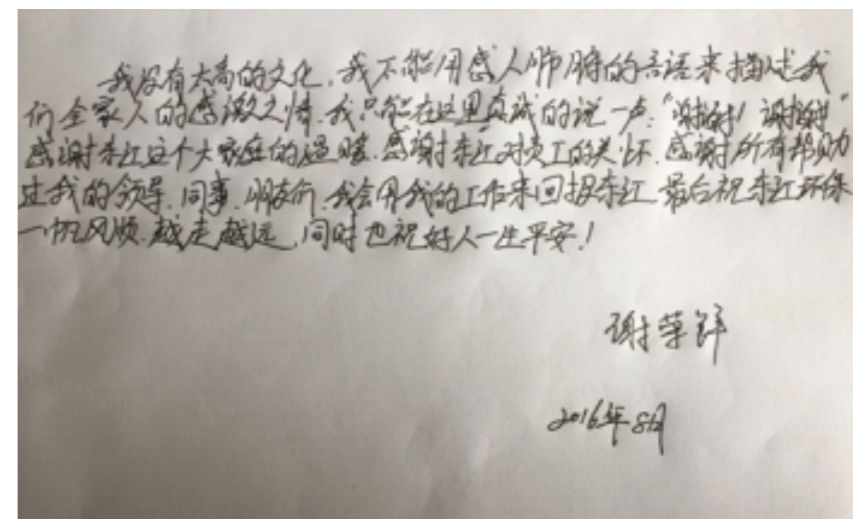 我没有太高的文化,我不能用感人肺腑的言语来描述我
们全家人的感激之情.我只能在这里真诚的说一声:“谢谢!谢谢”
感谢东江这个大家庭的温暖.感谢东江对员工的关怀.感谢所有帮助
过我的领导.同事.朋友们.我会用我的工作来回报东江.最后祝东江环保
一帆风顺.越走越远,同时也祝好人一生平安!
谢荣锌
2016年8月